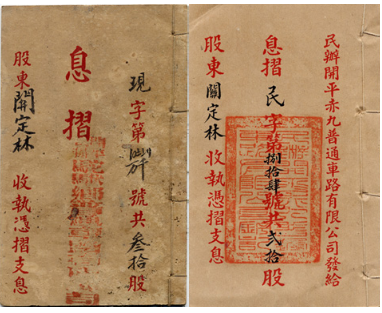 現字第號共叁拾股
息摺
股東關定林 收執憑摺支息
民辦開平赤九普通車路有限公司發給
息摺 民字第捌拾肆號共貳拾股
股東關定林 收執憑摺支息